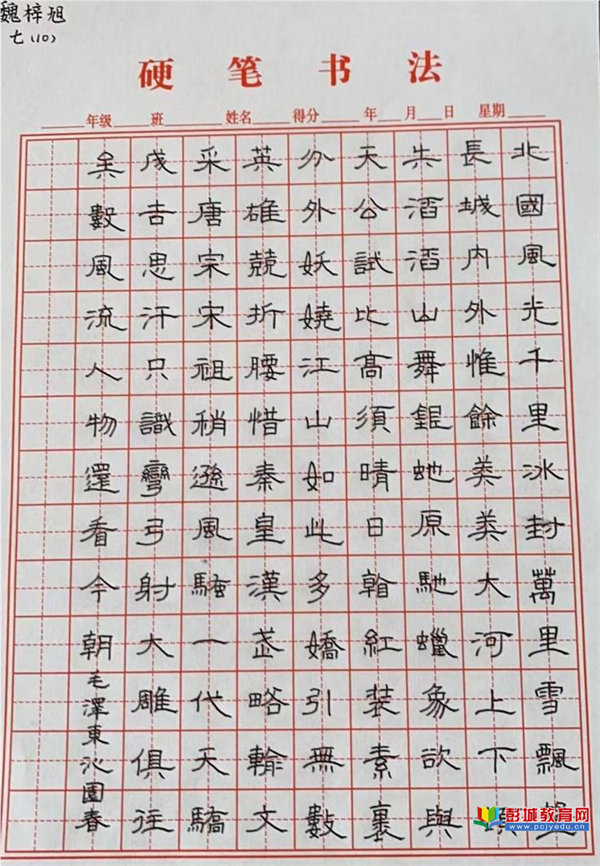 魏梓旭
七(10)
硬笔书法
年级 班 姓名 得分 年 月 日 星期
北國風光千里冰封萬里雪飄望
長城内外惟餘美美大河上下
失滔滔山舞銀蛇原馳蠟象欲與
天公試比高須晴日看紅装素裹
分外妖嬈江山如此多嬌引無數
英雄競折腰惜秦皇漢武略輸文
采唐宋宋祖稍遜風騷一代天驕
成吉思汗只識彎弓射大雕俱往
矣數風流人物還看今朝毛澤東沁園春
彭城教育网
www.pcjyedu.cn